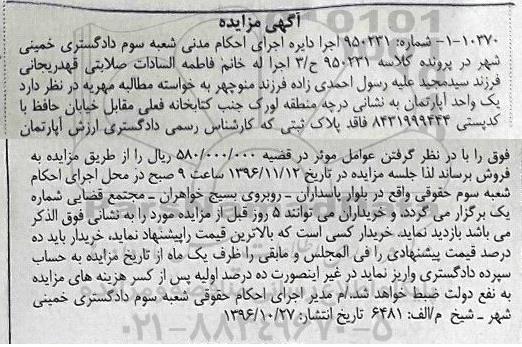 آگهی مزایده
۱۰۳۷۰-۱- شماره: ۹۵۰۲۳۱ اجرا دایره اجرای احکام مدنی شعبه سوم دادگستری خمینی
شهر در پرونده کلاسه ۹۵۰۲۳۱ ح/۳ اجرا له خانم فاطمه السادات صلابتی قهدریجانی
فرزند سیدمجید علیه رسول احمدی زاده فرزند منوچهر به خواسته مطالبه مهریه در نظر دارد
یک واحد آپارتمان به نشانی درچه منطقه لورک جنب کتابخانه فعلی مقابل خیابان حافظ با
کدپستی ۸۴۳۱۹۹۹۴۴۴ فاقد پلاک ثبتی که کارشناس رسمی دادگستری ارزش آپارتمان
فوق را با در نظر گرفتن عوامل موثر در قضیه ۵۸۰/۰۰۰/۰۰۰ ریال را از طریق مزایده به
فروش برساند لذا جلسه مزایده در تاریخ ۱۳۹۶/۱۱/۱۲ ساعت ۹ صبح در محل اجرای احکام
شعبه سوم حقوقی واقع در بلوار پاسداران ـ روبروی بسیج خواهران ـ مجتمع قضایی شماره
یک برگزار می گردد، و خریداران می توانند ۵ روز قبل از مزایده مورد را به نشانی فوق الذکر
می باشد بازدید نماید، خریدار کسی است که بالاترین قیمت راپیشنهاد نماید، خریدار باید ده
درصد قیمت پیشنهادی را فی المجلس و مابقی را ظرف یک ماه از تاریخ مزایده به حساب
سپرده دادگستری واریز نماید در غیر اینصورت ده درصد اولیه پس از کسر هزینه های مزایده
به نفع دولت ضبط خواهد شد./م مدیر اجرای احکام حقوقی شعبه سوم دادگستری خمینی
شهر ـ شیخ م/الف: ۶۴۸۱ تاریخ انتشار: ۱۳۹۶/۱۰/۲۷
۰۲۱-۸۸۳۴۹۶۷۰-۵